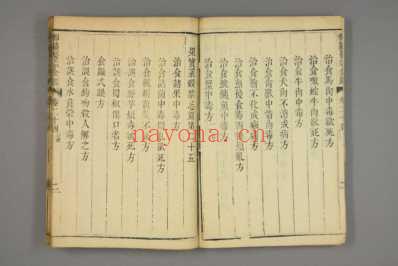 治食馬肉中毒欲死方
治食噉蛇牛肉欲死方
治食牛肉中毒方
治食犬肉不消成病方
中箭肉毒方
治食鱠不化成病方
治食魚後食毒煩亂方
治食鯸鮧魚中毒方
治食蟹中毒方
nayona.cn
果實菜穀禁忌篇第二十五
治食諸果中毒方
治食諸菌中毒欲死方
治食楓樹菌笑不止方
治誤食野芋煩毒欲死方
治誤食蜀椒閉口者方
食躁式躁方
治誤食鉤吻殺人解之方
治誤食水莨菪中毒方